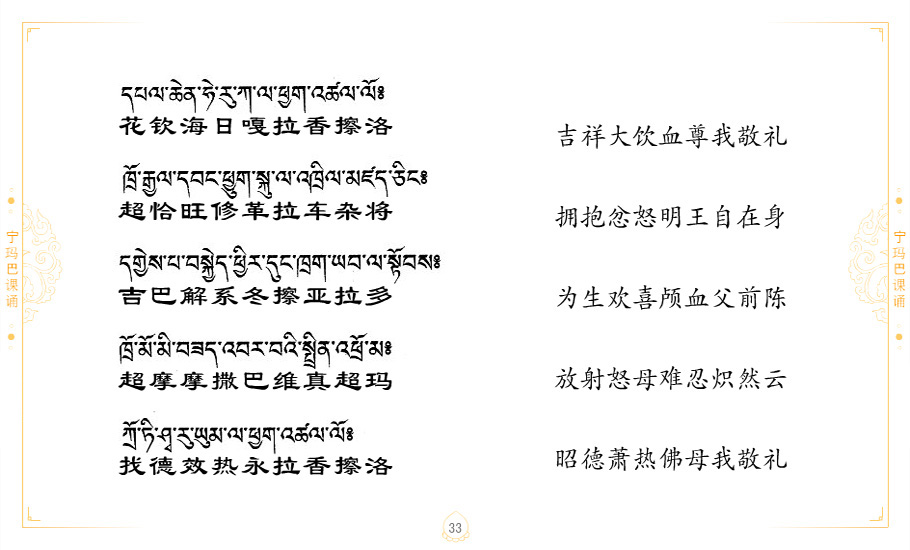 དཔལ་ཆེན་ཧེ་རུ་ཀ་ལ་ཕྱག་འཚལ་ལོ༔
花钦海日嘎拉香擦洛
吉祥大饮血尊我敬礼
ཁྲོ་རྒྱལ་དབང་ཕྱུག་སྐུ་ལ་འཁྲིལ་མཛད་ཅིང༔
超恰旺修革拉车杂将
拥抱忿怒明王自在身
དགྱེས་པ་བསྐྱེད་ཕྱིར་དུང་ཁྲག་ཡབ་ལ་སྟོབས༔
吉巴解系冬擦亚拉多
为生欢喜颅血父前陈
ཁྲོ་མོ་མི་བཟད་འབར་བའི་སྤྲིན་འཕྲོ་མ༔
超摩摩撒巴维真超玛
放射怒母难忍炽然云
ཀྲོ་ཏི་ཤྭ་རུ་ཡུམ་ལ་ཕྱག་འཚལ་ལོ༔
找德效热永拉香擦洛
昭德萧热佛母我敬礼
宁玛巴课诵
宁玛巴课诵
33